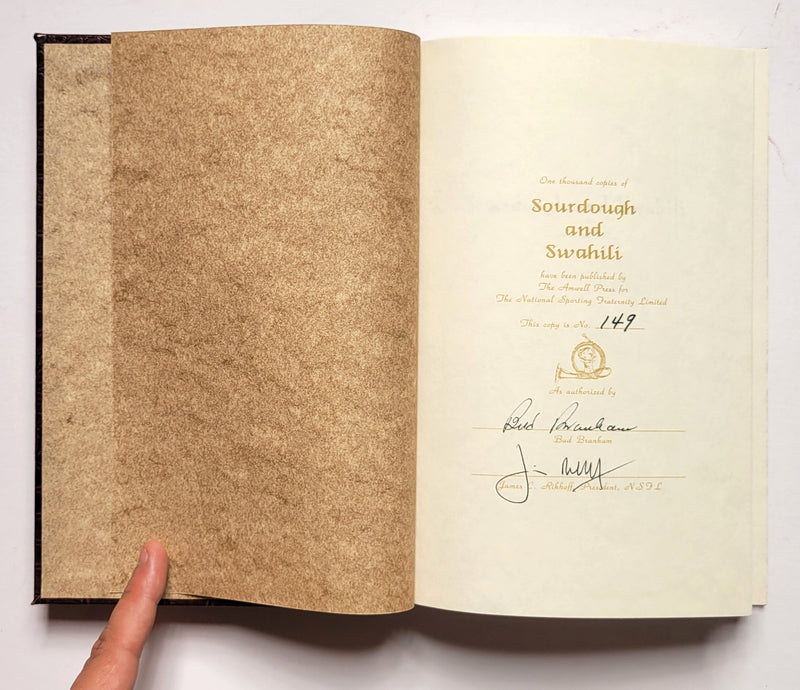 One thousand copies of
Sourdough
and
Swahili
have been published by
The Amwell Press for
The National Sporting Fraternity Limited
This copy is No. 149
As authorized by
Bud Branham
Bud Branham
James L. Rikhoff, President, NSFL